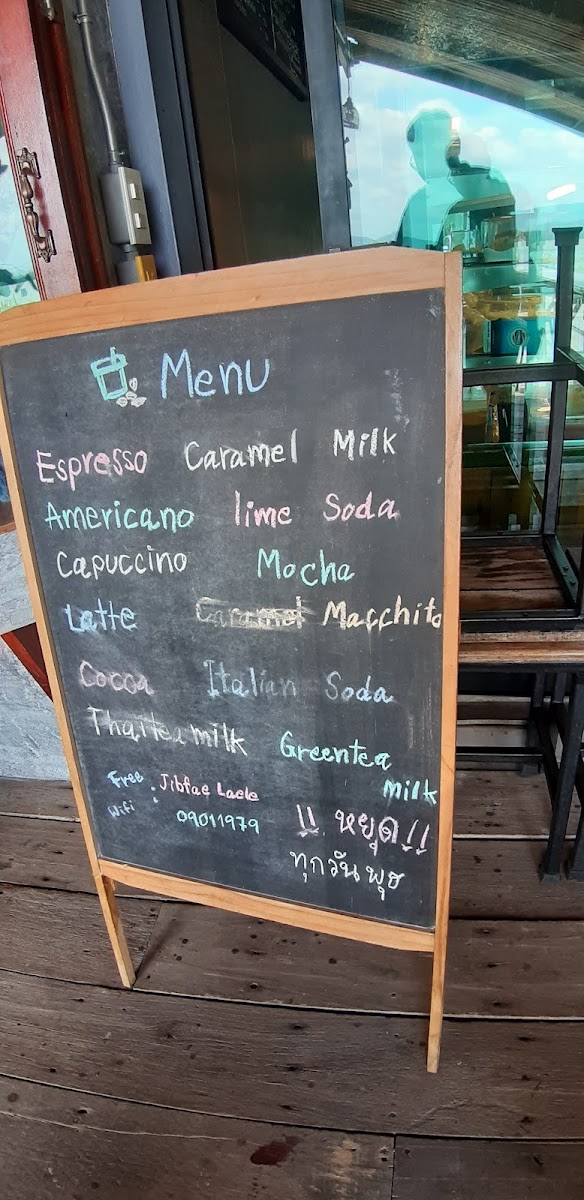 Menu
Espresso Caramel Milk
Americano lime Soda
Capuccino Mocha
Latte Caramel Macchito
Cocoa Italian Soda
Thaitea milk Greentea milk
Free Wifi : Jibfae Laele
09011979
!! หยุด !!
ทุกวันพุธ